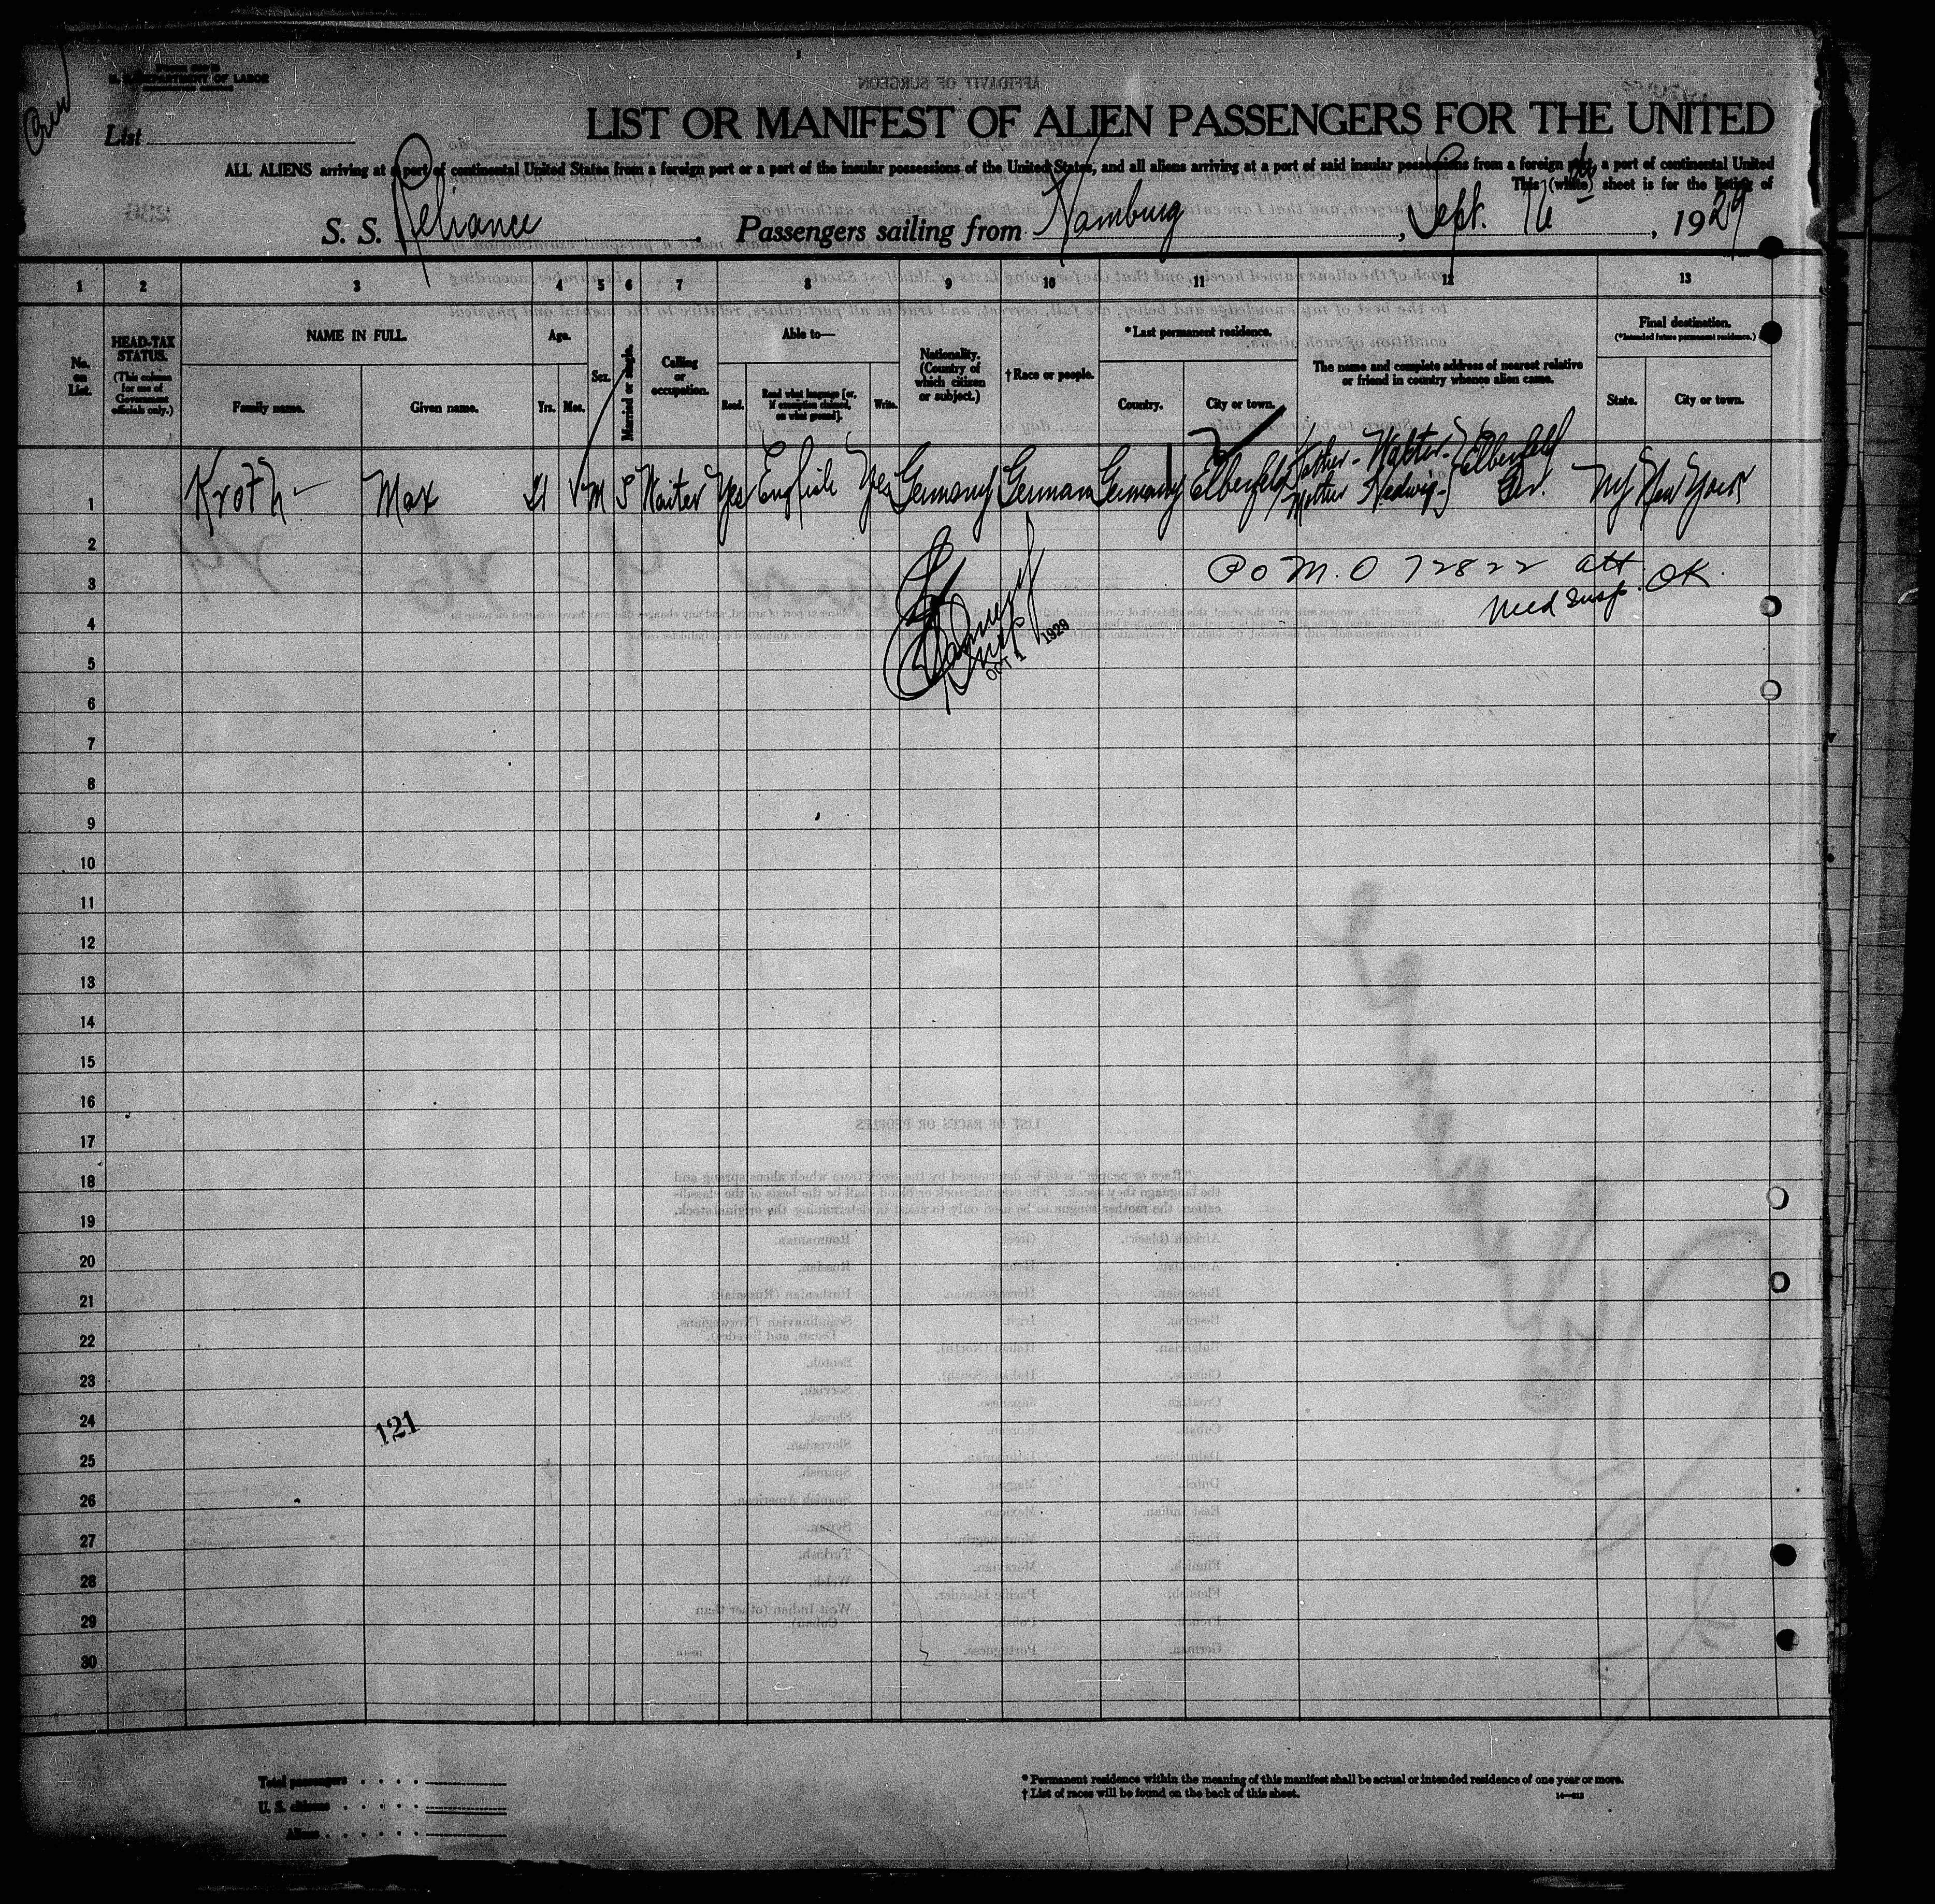 U. S. DEPARTMENT OF LABOR
List
LIST OR MANIFEST OF ALIEN PASSENGERS FOR THE UNITED
ALL ALIENS arriving at a port of continental United States from a foreign port or a port of the insular possessions of the United States, and all aliens arriving at a port of said insular possessions from a foreign port, a port of continental United
This (white) sheet is for the listing of
S. S. Reliance Passengers sailing from Hamburg, Sept. 16th, 1929
1 2 3 4 5 6 7 8 9 10 11 12 13
No. on List.
HEAD-TAX STATUS.
(This column for use of Government officials only.)
NAME IN FULL.
Family name. Given name.
Age.
Yrs. Mos.
Sex.
Married or single.
Calling or occupation.
Able to—
Read. Read what language [or, if exemption claimed, on what ground]. Write.
Nationality. (Country of which citizen or subject.)
† Race or people.
* Last permanent residence.
Country. City or town.
The name and complete address of nearest relative or friend in country whence alien came.
Final destination.
(* Intended future permanent residence.)
State. City or town.
1 Kroth Max 21 M S Waiter Yes English Yes Germany German Germany Elberfeld Father - Walter - Mother Hedwig - Elberfeld Ger. NY New York
2
3 P o M. O 72822 att OK.
4
5 OCT 1 1929
6
7
8
9
10
11
12
13
14
15
16
17
18
19
20
21
22
23
24 121
25
26
27
28
29
30
Total passengers
U. S. citizens
Aliens
* Permanent residence within the meaning of this manifest shall be actual or intended residence of one year or more.
† List of races will be found on the back of this sheet.